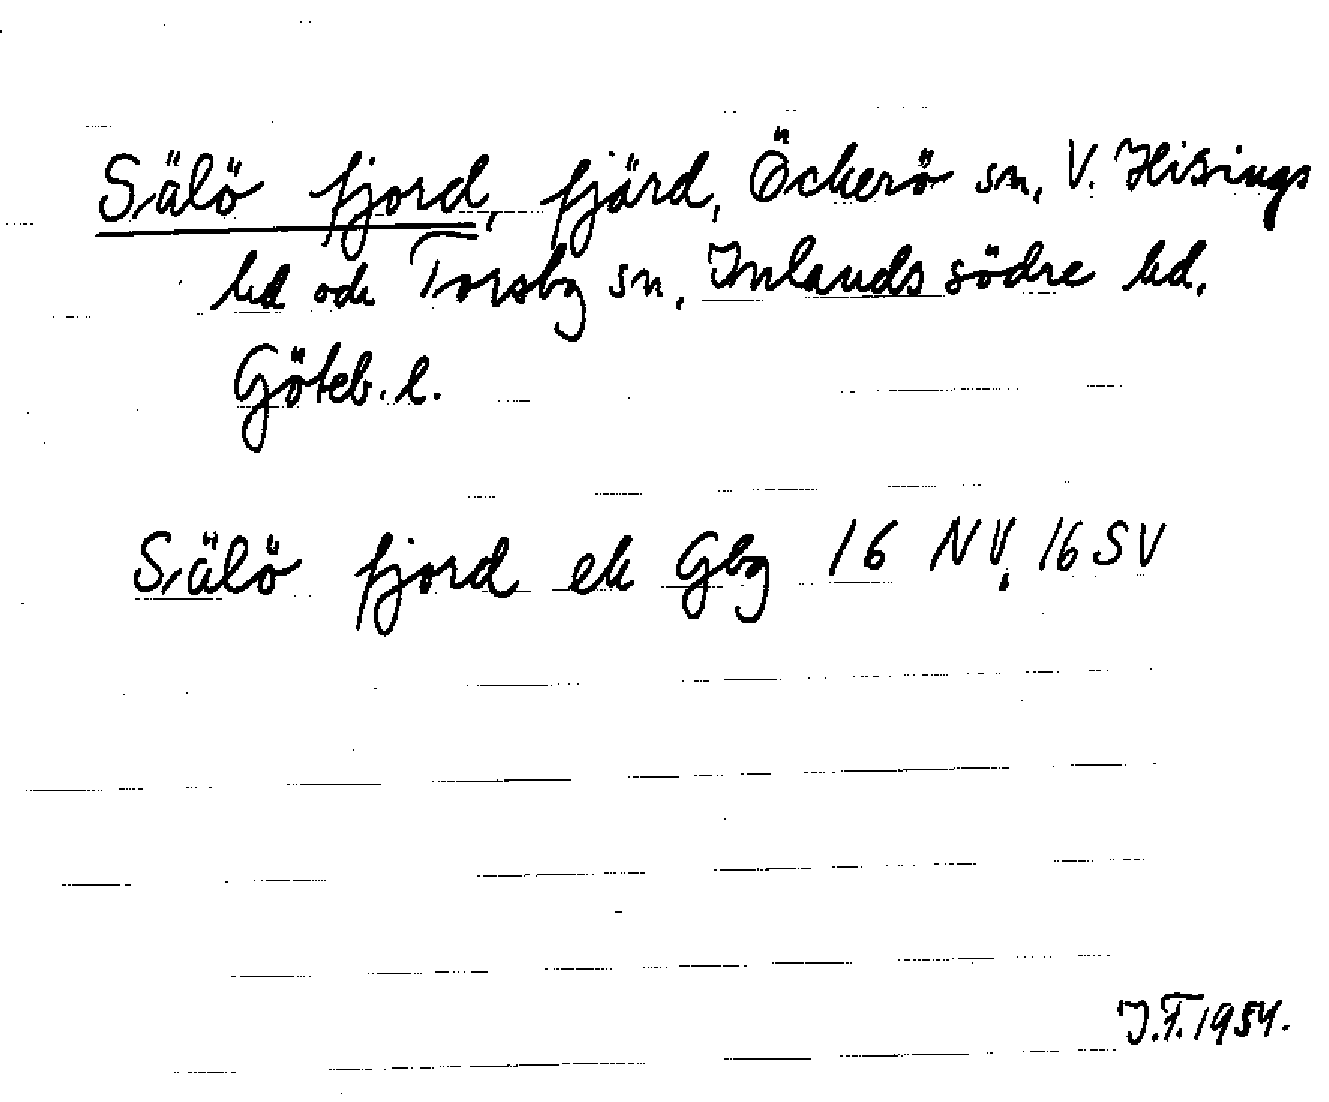 Sälö fjord, fjärd, Öckerö sn, V. Hisings
hd och Torsby sn, Inlands södre hd,
Göteb. l.
Sälö fjord ek Gbg 16 NV, 16 SV
J.T. 1954.